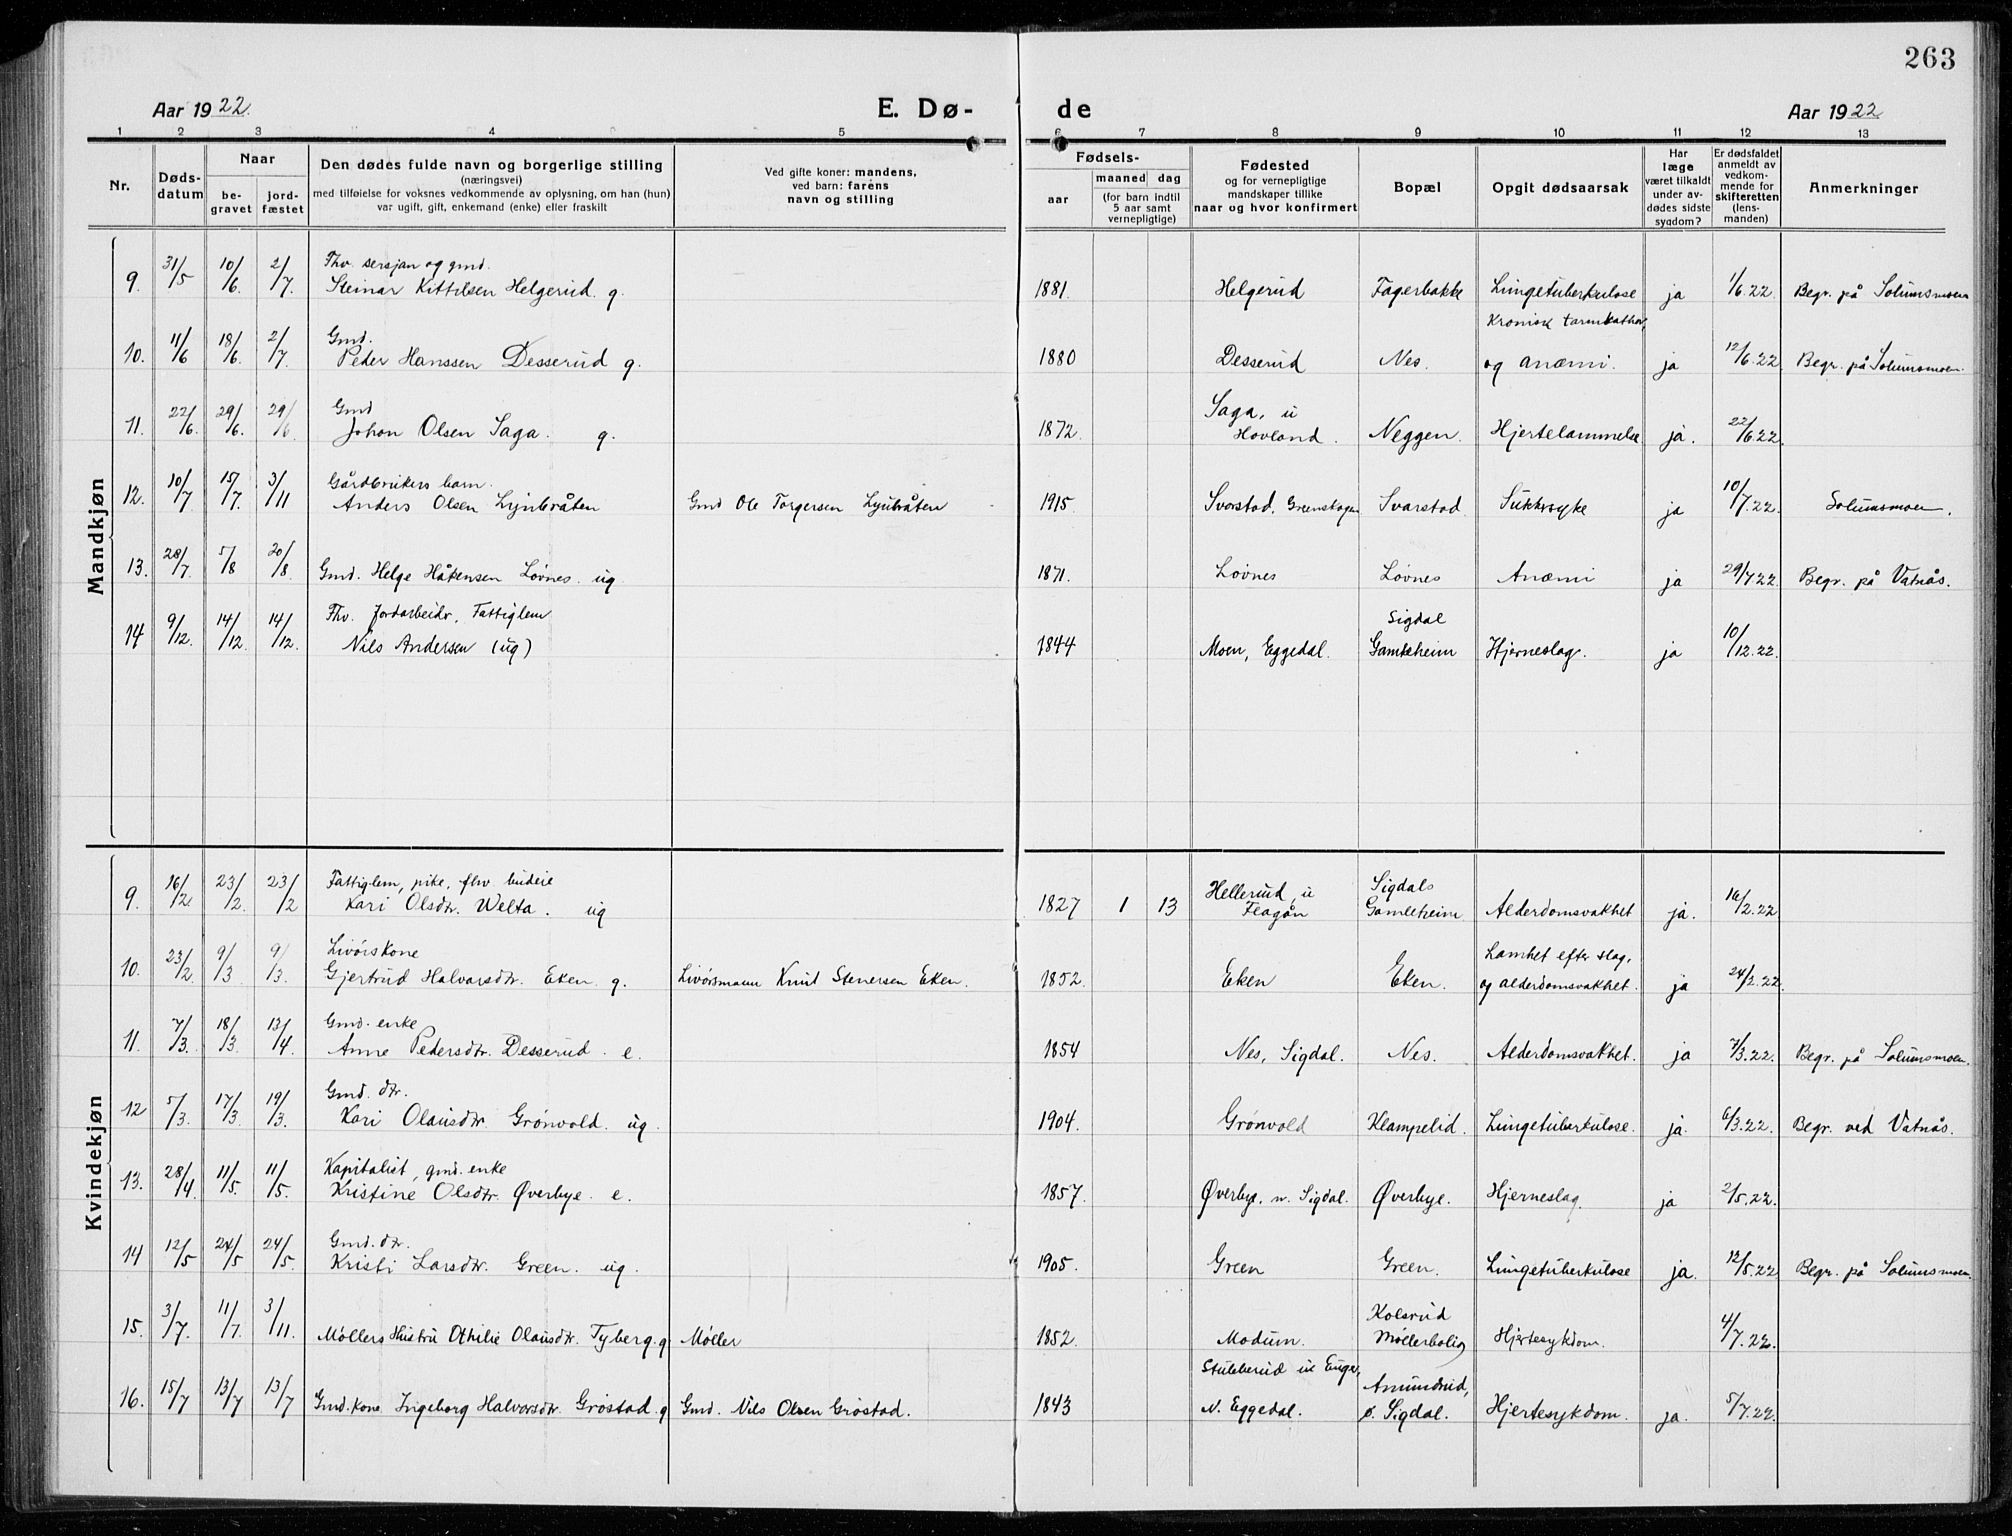 263
Aar 1922.
E. Dø-
de
Aar 1922
1 2 3 4 5 6 7 8 9 10 11 12 13
Nr.
Døds-
datum
Naar
be-
gravet
jord-
fæstet
Den dødes fulde navn og borgerlige stilling
(næringsvei)
med tilføielse for voksnes vedkommende av oplysning, om han (hun)
var ugift, gift, enkemand (enke) eller fraskilt
Ved gifte koner: mandens,
ved barn: farens
navn og stilling
Fødsels-
aar
maaned
dag
(for barn indtil
5 aar samt
vernepligtige)
Fødested
og for vernepligtige
mandskaper tillike
naar og hvor konfirmert
Bopæl
Opgit dødsaarsak
Har
læge
været tilkaldt
under av-
dødes sidste
sygdom?
Er dødsfaldet
anmeldt av
vedkom-
mende for
skifteretten
(lens-
manden)
Anmerkninger
Mandkjøn
Thv. sersjan og gmd.
9. 31/5 10/6 2/7. Steinar Kittilsen Helgerud. g. 1881. Helgerud Fagerbakke Lungetuberkulose ja 1/6.22. Begr. på Solumsmoen
Gmd. Kronisk tarmkathar,
10. 11/6 18/6. 2/7. Peder Hanssen Desserud g. 1880 Desserud Nes. og anæmi. ja 12/6.22 Begr. på Solumsmoen.
Gmd Saga, u
11. 22/6. 29/6. 29/6 Johan Olsen Saga. g. 1872. Hovland. Neggen. Hjertelammelse ja. 22/6.22.
Gårdbrukers barn.
12. 10/7 15/7. 3/11 Anders Olsen Ljubråten Gmd Ole Torgersen Ljubråten 1915. Svarstad, Greenskogen Svarstad. Sukkersyke ja 10/7.22. Solumsmoen.
13. 28/7. 5/8 20/8. Gmd. Helge Håkensen Lovnes. ug. 1871. Lovnes Lovnes Anæmi ja 29/7.22. Begr. på Vatnås.
Thv. Jordarbeidr, Fattiglem Sigdal
14 9/12. 14/12. 14/12. Nils Andersen (ug) 1844 Moen, Eggedal. Gamleheim Hjerneslag. ja 10/12.22.
Kvindekjøn
Fattiglem, pike, fhv. budeie Hellerud, u Sigdals
9. 16/2. 23/2. 23/2 Kari Olsdtr. Welta. ug 1827 1 13 Flagån Gamleheim Alderdomsvakhet ja. 16/2.22
Livørskone Lamhet efter slag,
10. 23/2 9/3 9/3. Gjertrud Halvorsdtr. Eken. g. Livørsmann Knut Stenersen Eken. 1852. Eken Eken. og alderdomsvakhet. ja 24/2.22.
Gmd. enke
11. 7/3. 18/3. 13/4. Anne Pedersdtr. Desserud. e. 1854 Nes, Sigdal. Nes. Alderdomsvakhet. ja 7/3.22. Begr. på Solumsmoen.
Gmd. dtr.
12 5/3. 17/3 19/3. Kari Olausdtr. Grønvold. ug. 1904. Grønvold Klampelid. Lungetuberkulose. ja. 6/3.22. Begr. ved Vatnås.
Kapitalist, gmd. enke
13. 28/4. 11/5. 11/5. Kristine Olsdtr. Øverbye. e. 1857. Øverbye, n. Sigdal. Øverbye. Hjerneslag. ja 2/5.22.
Gmd. dtr.
14 12/5 24/5 24/5. Kristi Larsdtr. Green. ug. 1905. Green Green. Lungetuberkulose ja. 12/5.22 Begr. på Solumsmoen.
Kolsrud
15. 3/7. 11/7. 3/11. Møllers Hustru Othilie Olausdtr. Tyberg. g Møller 1852. Modum. Møllerbolig Hjertesykdom. 4/7.22.
Stubberud u Enger, Amundrud,
16. 15/7 13/7 13/7 Gmd. kone Ingeborg Halvorsdtr. Grøstad. g Gmd. Nils Olsen Grøstad. 1843 N. Eggedal. ø. Sigdal. Hjertesykdom. ja. 5/7.22.